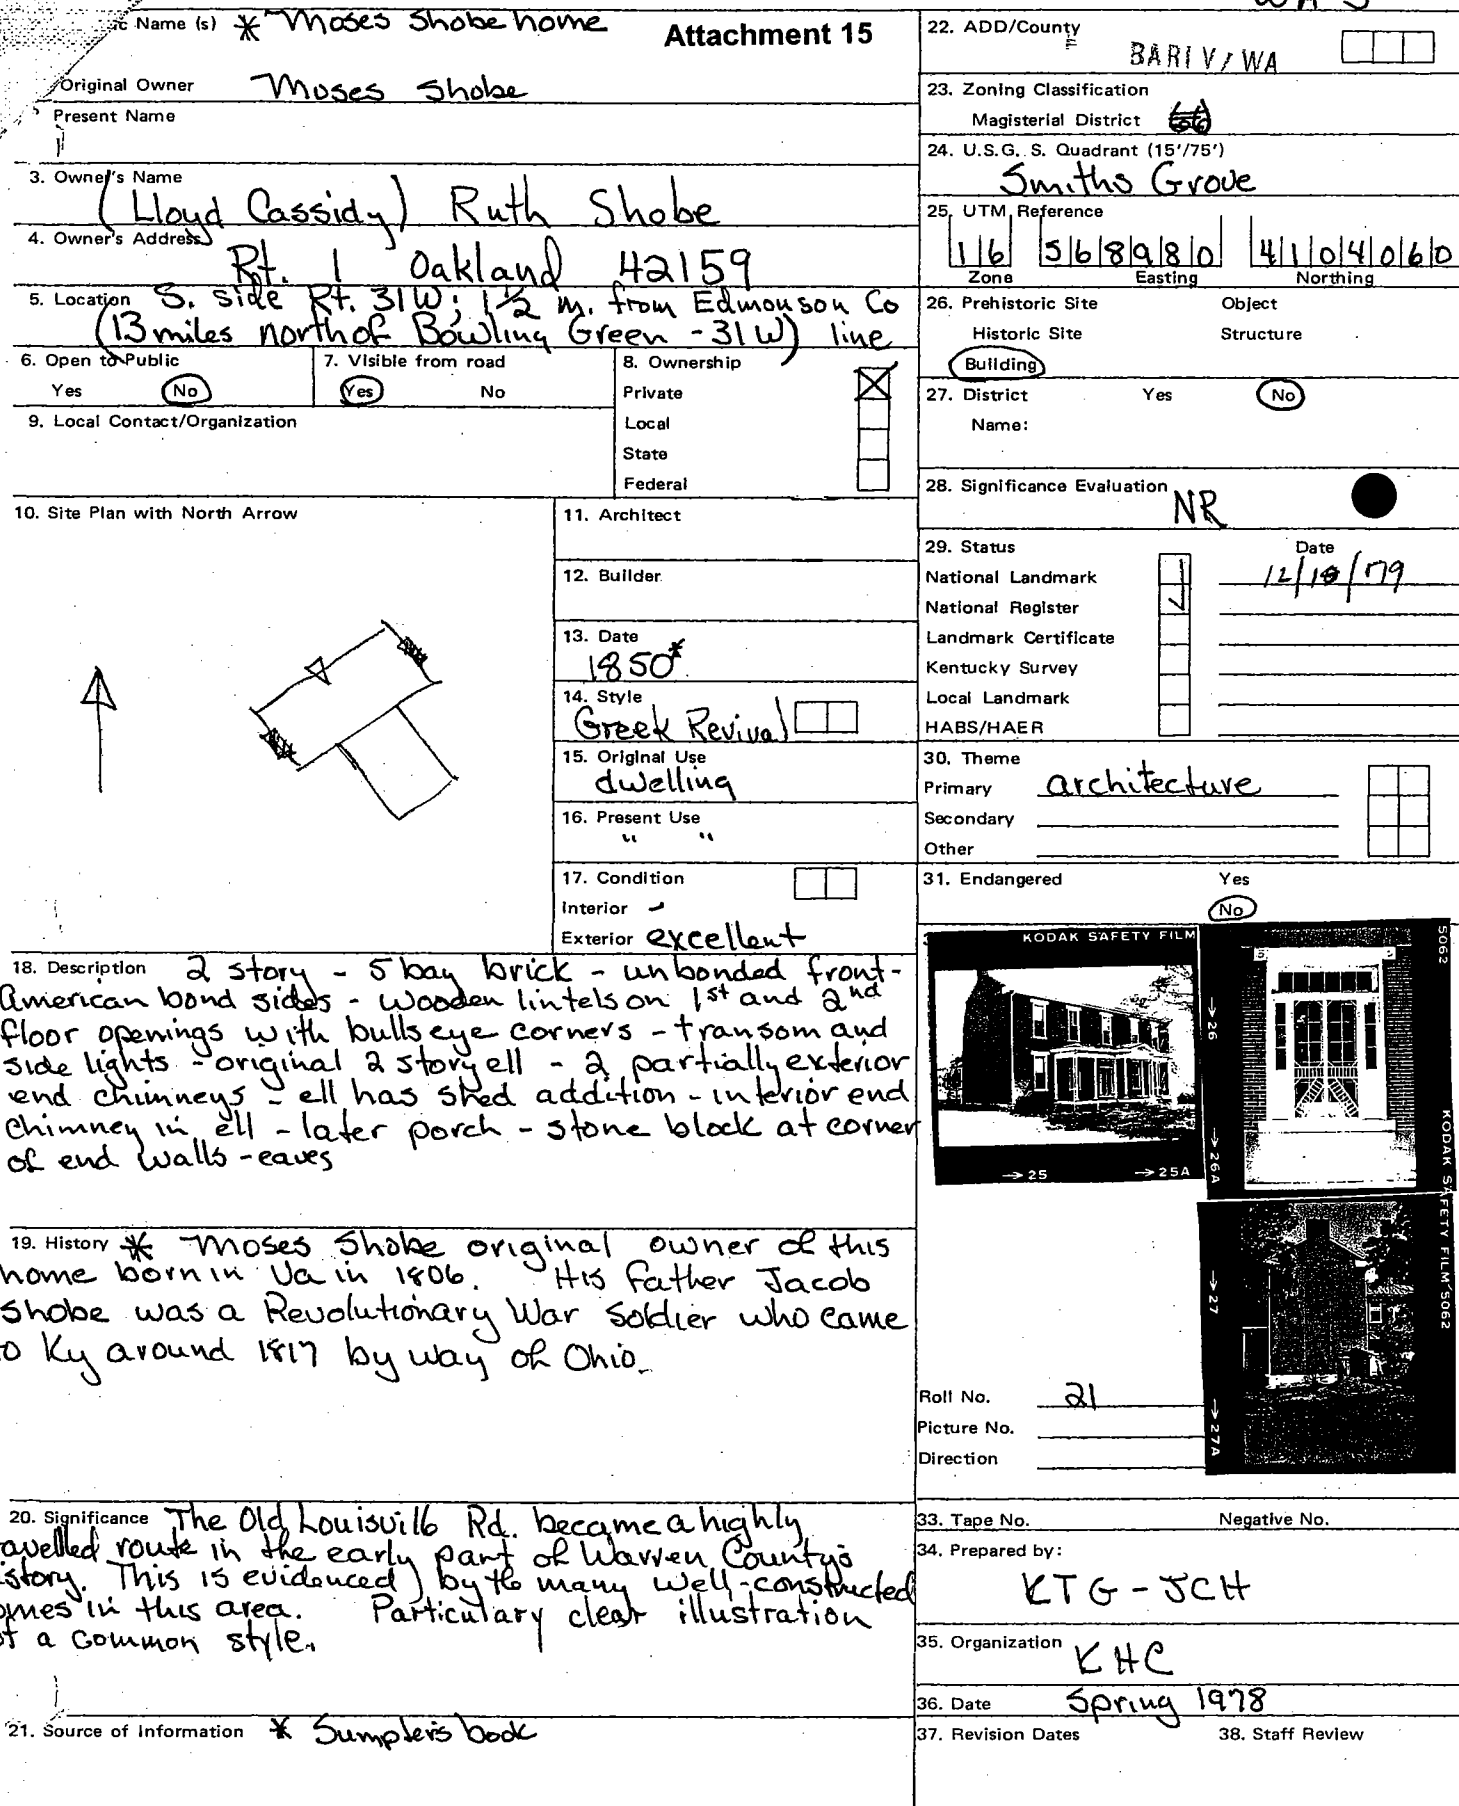 WA 5
c Name (s) * Moses Shobe home
Attachment 15
Original Owner Moses Shobe
Present Name
3. Owner's Name
(Lloyd Cassidy) Ruth Shobe
4. Owner's Address
Rt. 1 Oakland 42159
5. Location S. side Rt. 31W; 1½ m. from Edmonson Co
(13 miles north of Bowling Green - 31W) line
6. Open to Public
Yes No
7. Visible from road
Yes No
8. Ownership
Private
Local
State
Federal
9. Local Contact/Organization
10. Site Plan with North Arrow
11. Architect
12. Builder
13. Date
1850*
14. Style
Greek Revival
15. Original Use
dwelling
16. Present Use
" "
17. Condition
Interior -
Exterior excellent
18. Description 2 story - 5 bay brick - unbonded front-
American bond sides - wooden lintels on 1st and 2nd
floor openings with bullseye corners - transom and
side lights - original 2 story ell - 2 partially exterior
end chimneys - ell has shed addition - interior end
chimney in ell - later porch - stone block at corner
of end walls - eaves
19. History * Moses Shobe original owner of this
home born in Va in 1806. His father Jacob
Shobe was a Revolutionary War soldier who came
o Ky around 1817 by way of Ohio.
20. Significance The Old Louisville Rd. became a highly
avelled route in the early part of Warren County's
istory. This is evidenced by the many well-constructed
omes in this area. Particulary clear illustration
of a common style.
21. Source of Information * Sumpter's book
22. ADD/County
BARIV/WA
23. Zoning Classification
Magisterial District
24. U.S.G. S. Quadrant (15'/75')
Smiths Grove
25. UTM Reference
16 568980 4104060
Zone Easting Northing
26. Prehistoric Site Object
Historic Site Structure
Building
27. District Yes No
Name:
28. Significance Evaluation NR
29. Status Date
National Landmark 12/18/79
National Register
Landmark Certificate
Kentucky Survey
Local Landmark
HABS/HAER
30. Theme
Primary architecture
Secondary
Other
31. Endangered Yes
No
KODAK SAFETY FILM
→25 →25A
5062
→26
→26A
KODAK SAFETY FILM 5062
→27
→27A
Roll No. 21
Picture No.
Direction
33. Tape No. Negative No.
34. Prepared by:
KTG-JCH
35. Organization KHC
36. Date Spring 1978
37. Revision Dates 38. Staff Review